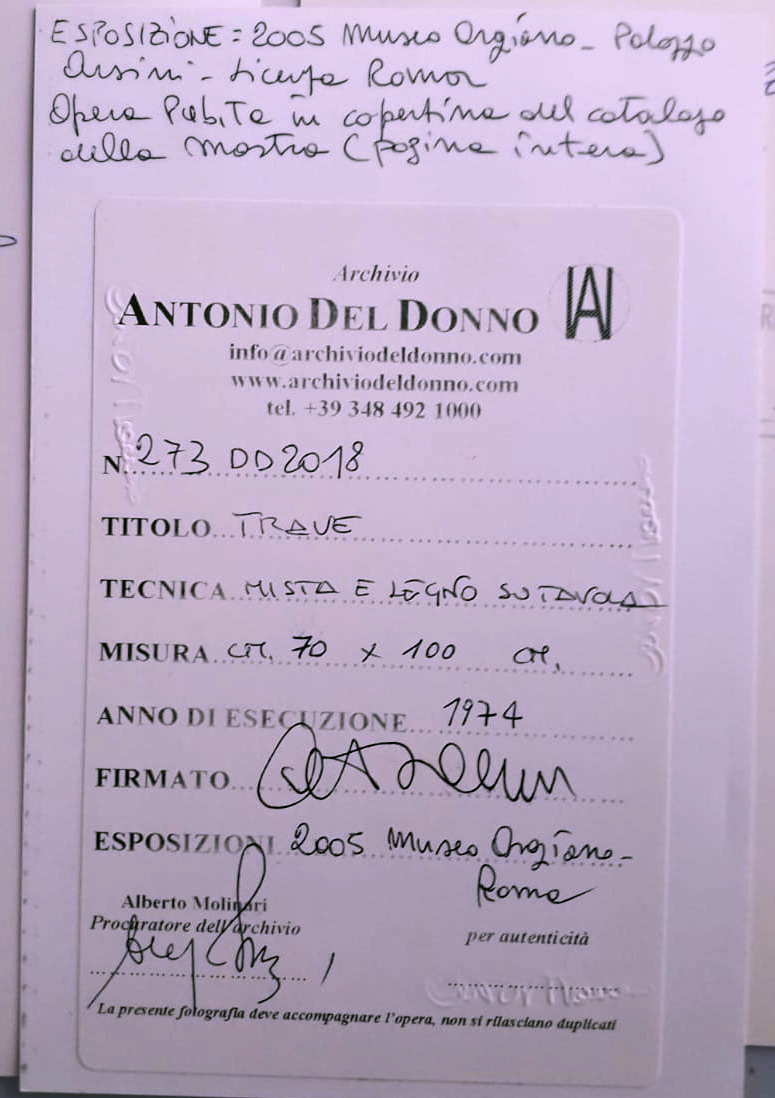 ESPOSIZIONE = 2005 Museo Orgiano - Palazzo
Orsini - Licenza Roma
Opera Pub.ta in copertina del catalogo
della mostra (pagina intera)
Archivio
ANTONIO DEL DONNO
info@archiviodeldonno.com
www.archiviodeldonno.com
tel. +39 348 492 1000
N. 273 DD2018
TITOLO TRAVE
TECNICA MISTA E LEGNO SU TAVOLA
MISURA CM. 70 x 100 CM.
ANNO DI ESECUZIONE 1974
FIRMATO
ESPOSIZIONI 2005 Museo Orgiano -
Roma
Alberto Molinari
Procuratore dell'archivio
per autenticità
La presente fotografia deve accompagnare l'opera, non si rilasciano duplicati